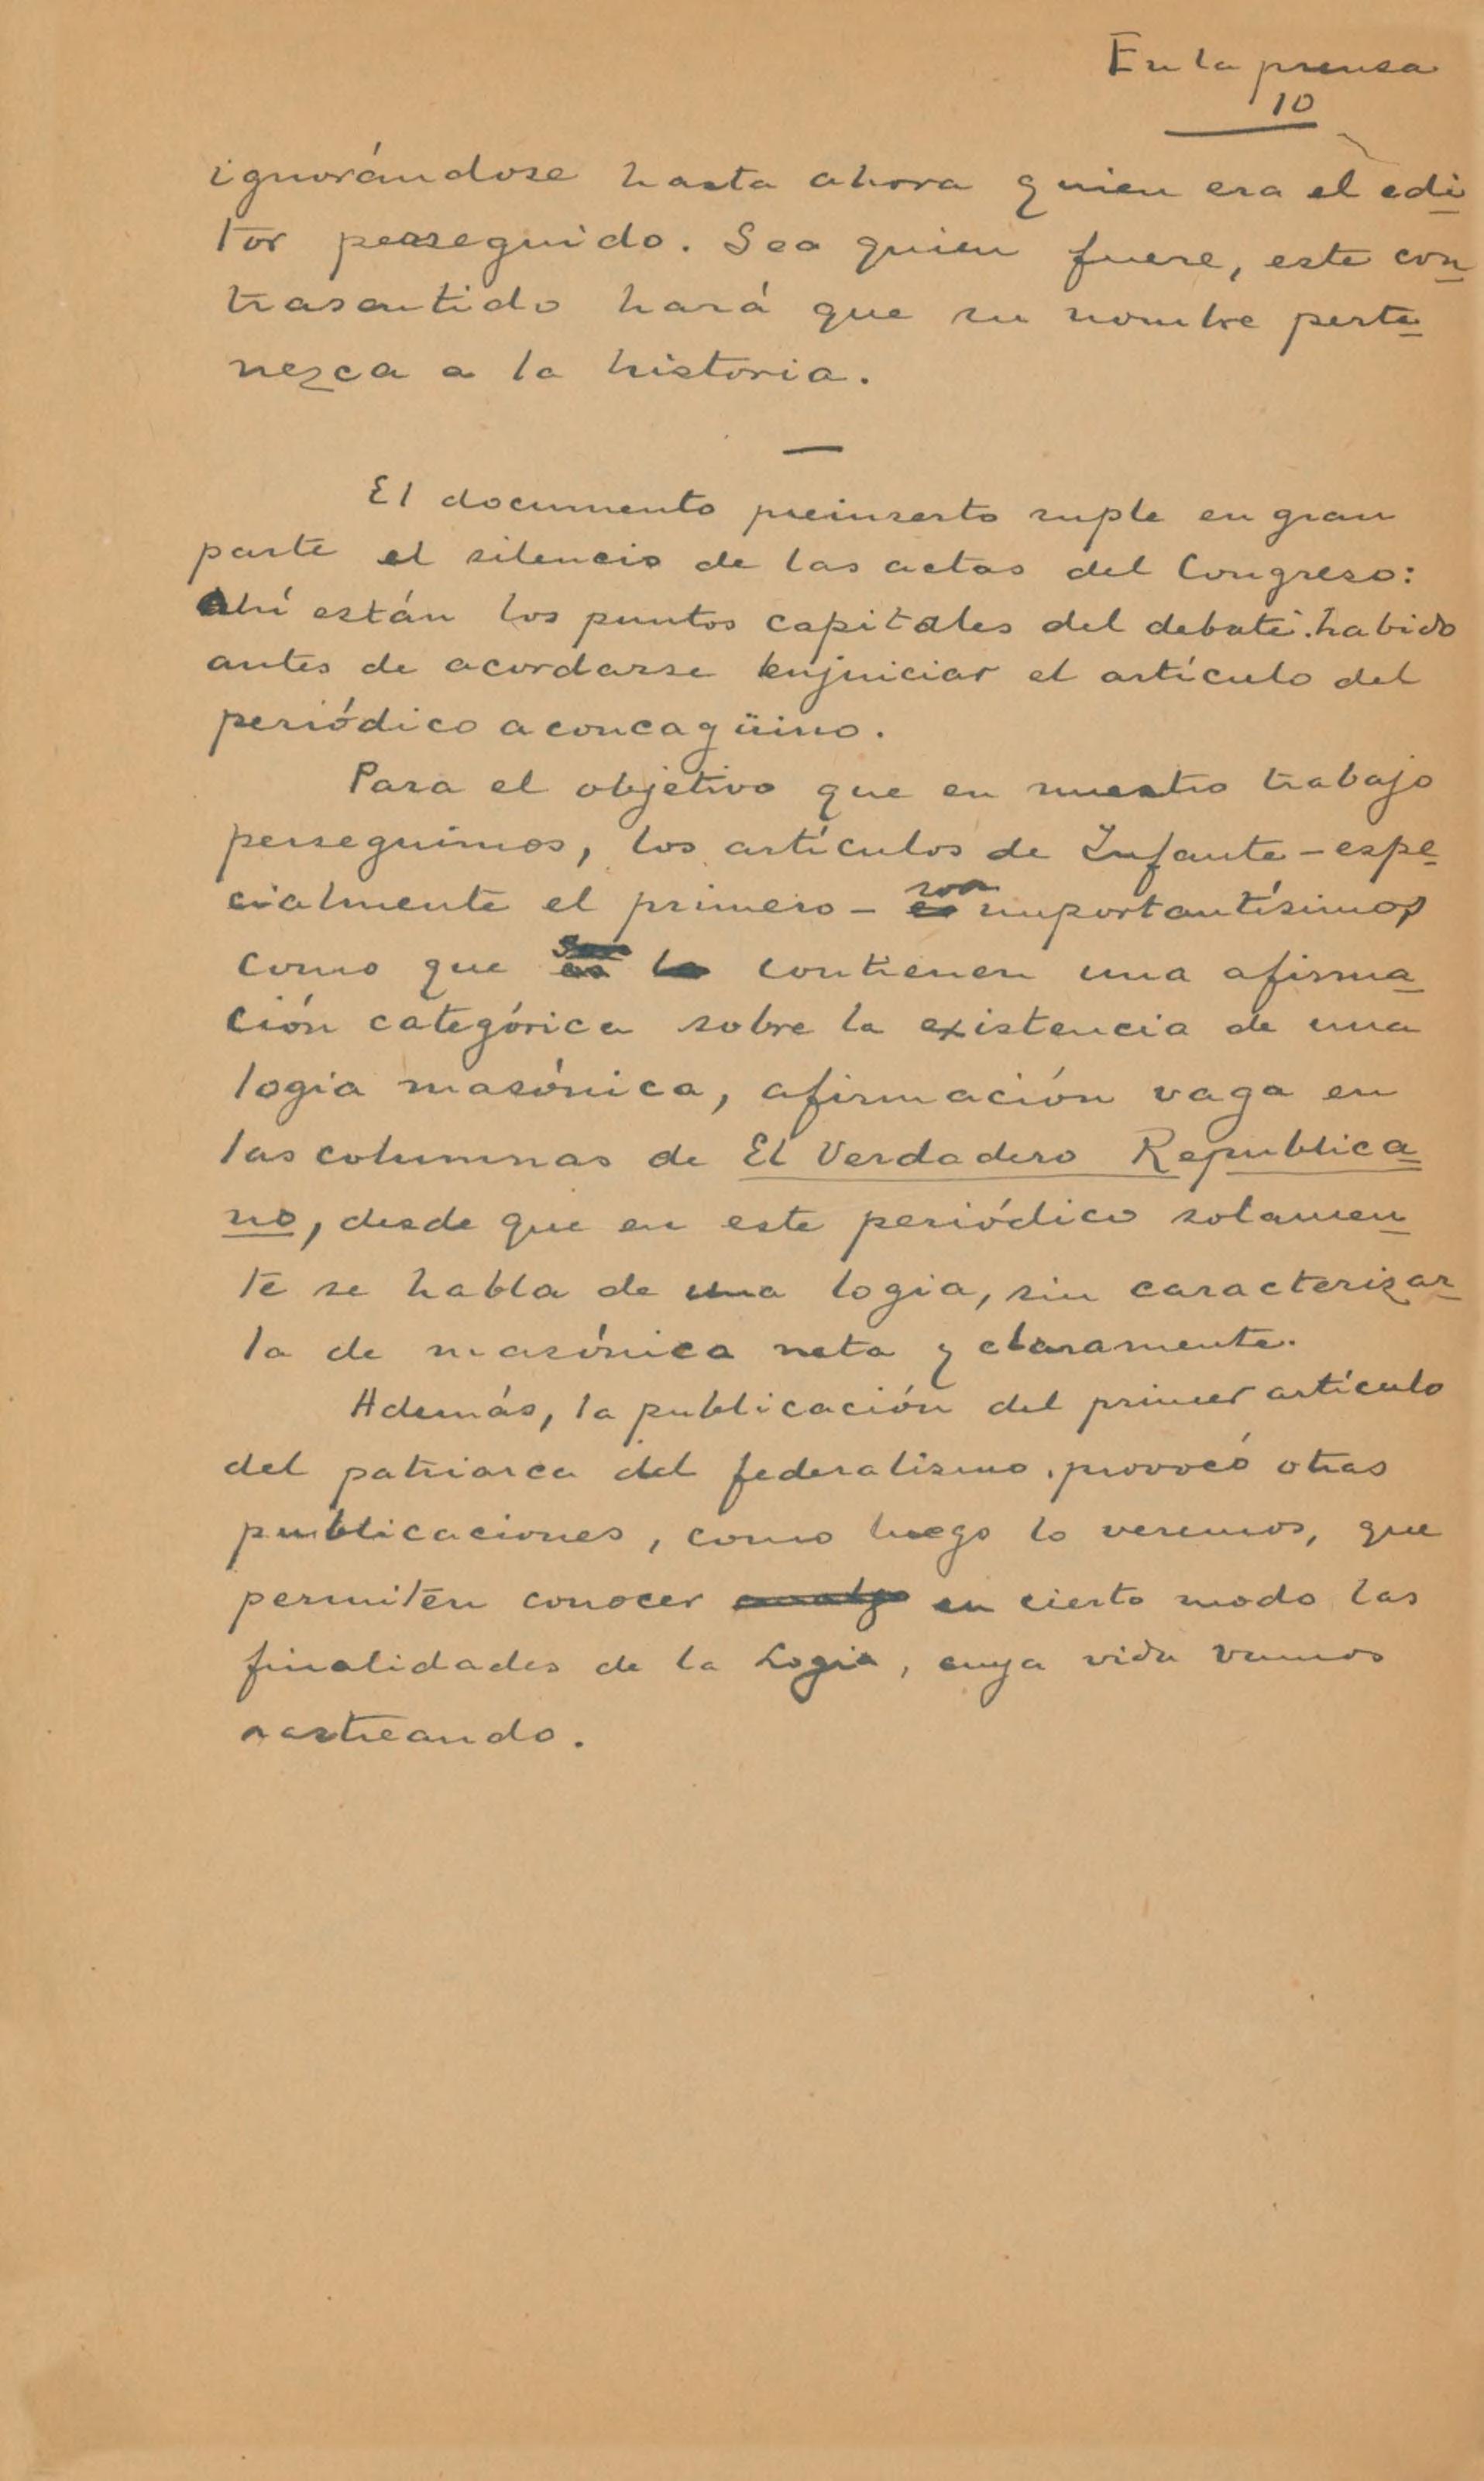 En la prensa
10
ignorándose hasta ahora quien era el edi
tor perseguido. Sea quien fuere, este con
trasentido hará que su nombre perte
nezca a la historia.
El documento preinserto suple en gran
parte el silencio de las actas del Congreso:
Ahí están los puntos capitales del debate habido
antes de acordarse enjuiciar el artículo del
periódico aconcagüino.
Para el objetivo que en nuestro trabajo
perseguimos, los artículos de Infante - espe
cialmente el primero - son importantísimos
como que contienen una afirma
ción categórica sobre la existencia de una
logia masónica, afirmación vaga en
las columnas de El Verdadero Republica
no, desde que en este periódico solamen
te se habla de una logia, sin caracterizar
la de masónica neta y claramente.
Además, la publicación del primer artículo
del patriarca del federalismo, provocó otras
publicaciones, como luego lo veremos, que
permiten conocer en cierto modo las
finalidades de la Logia, cuya vida vamos
rastreando.